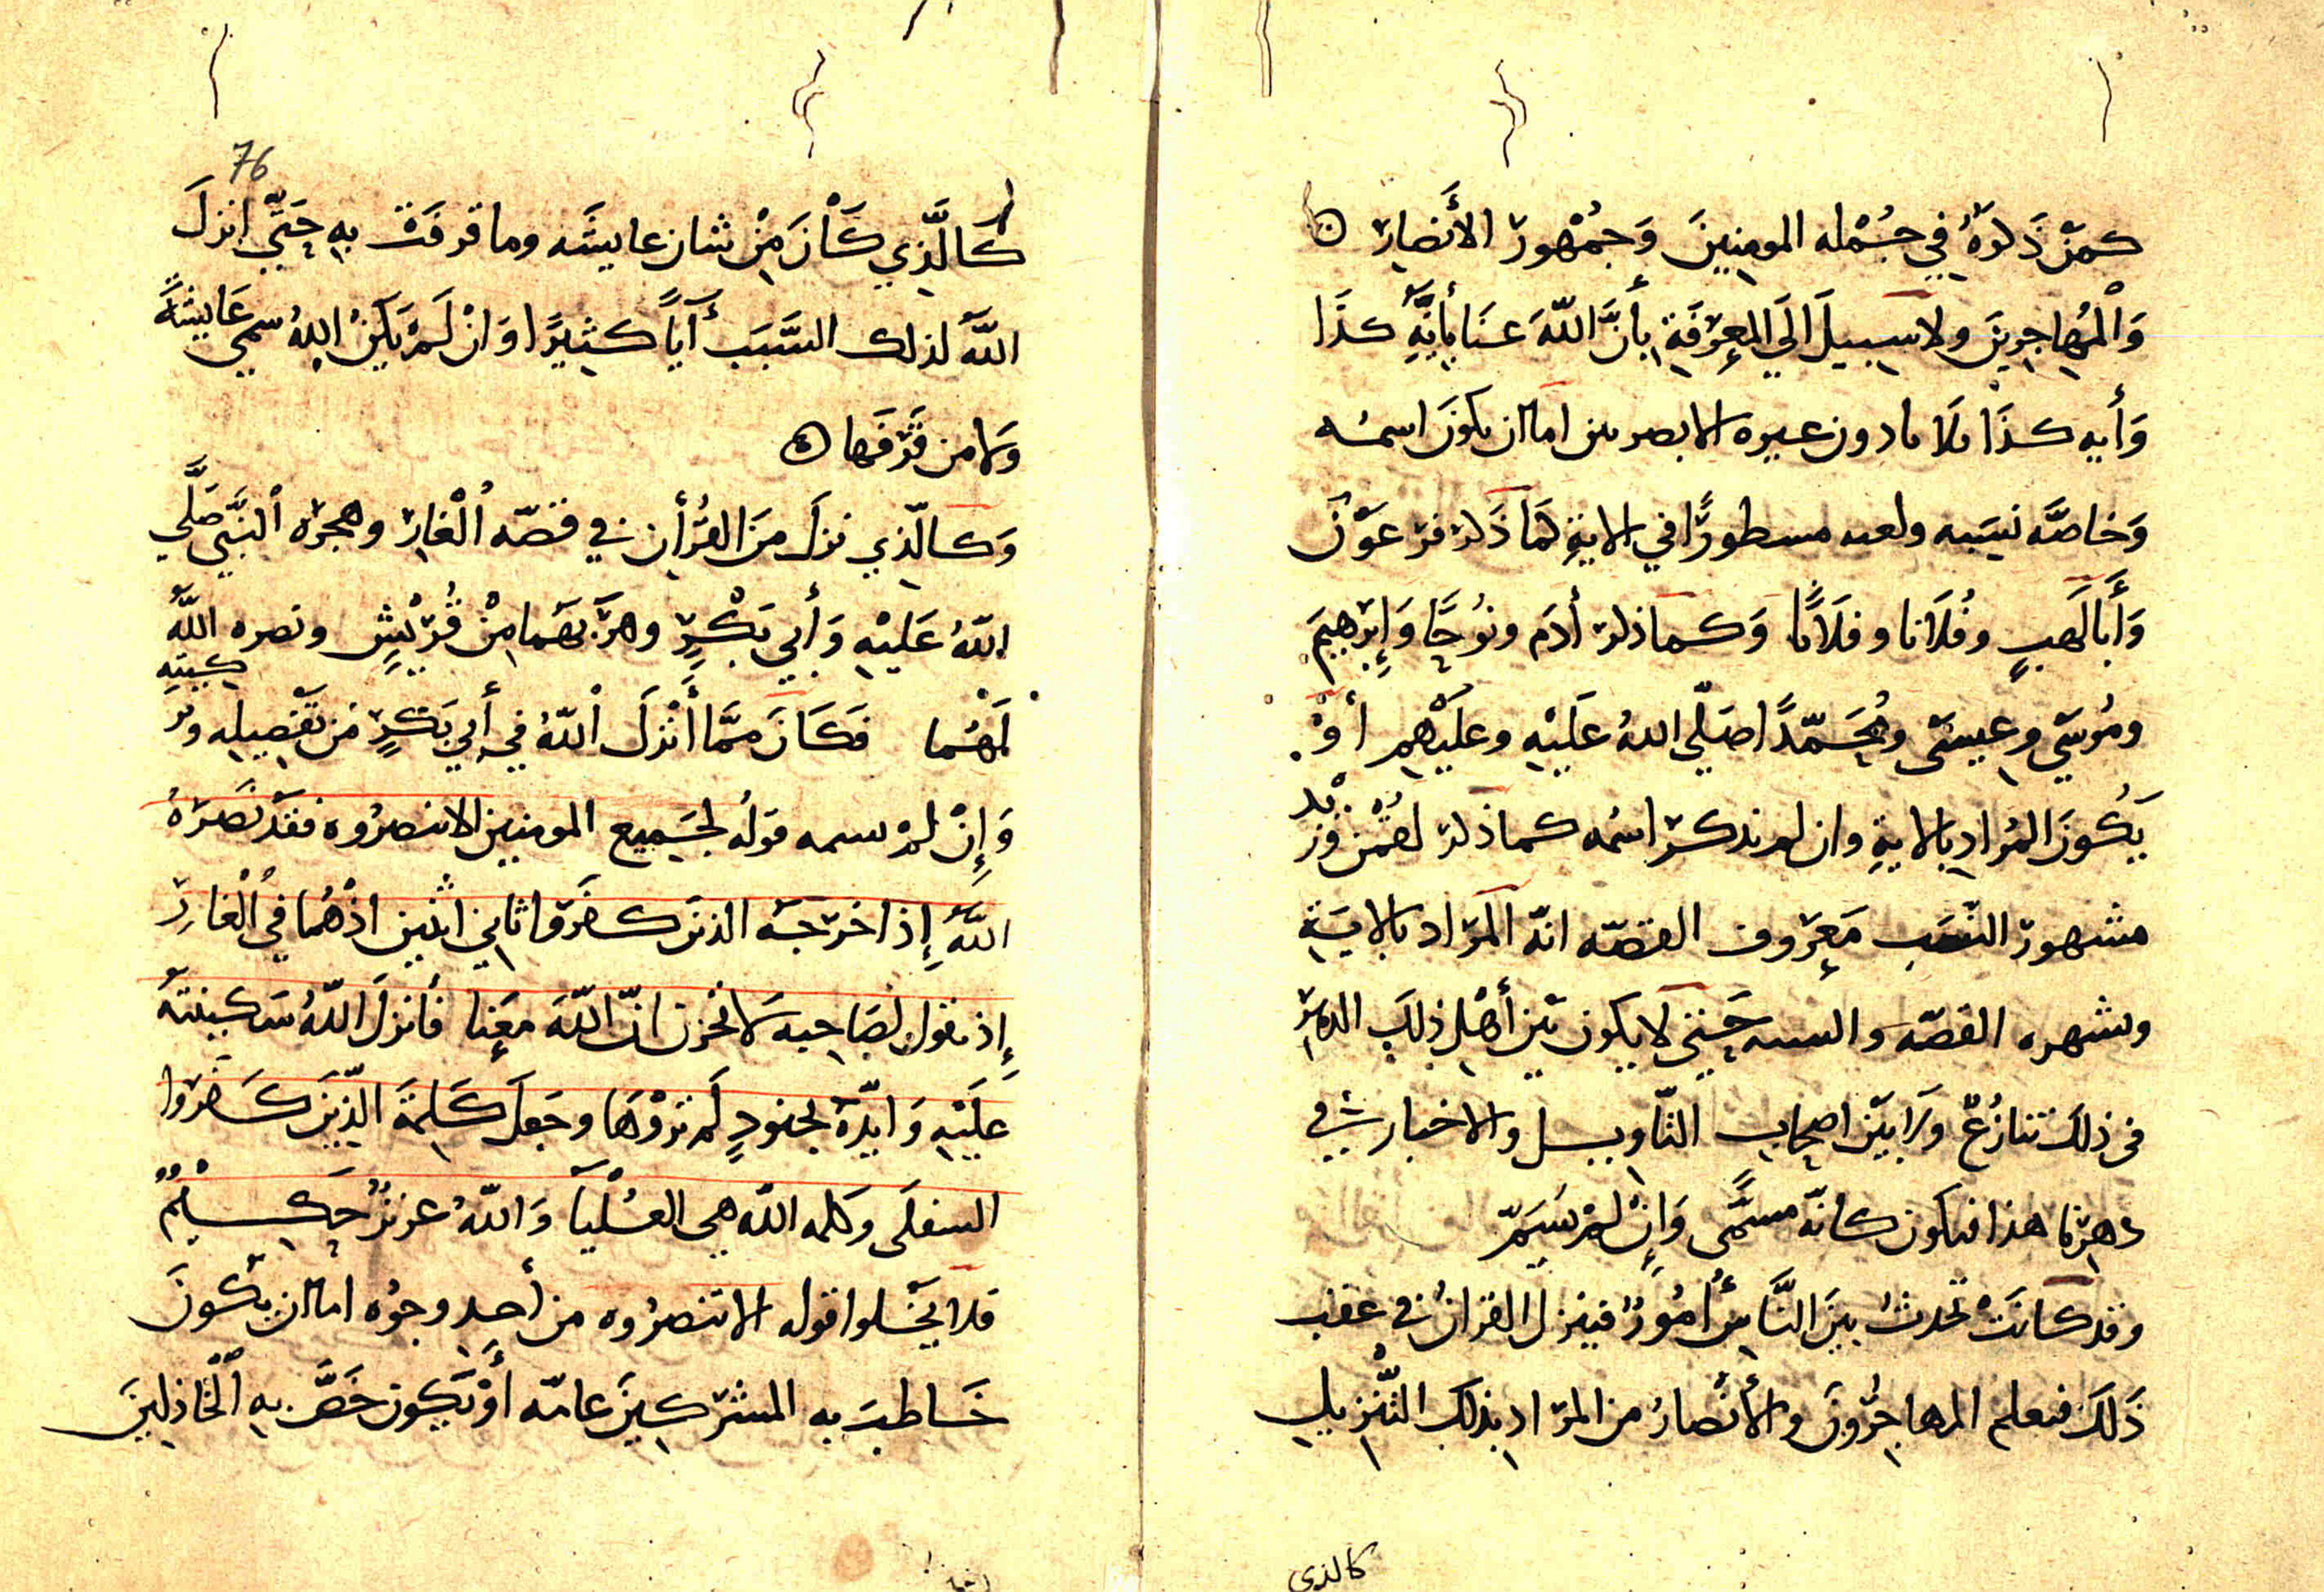 كمن ذكره في جمله المومنين وجمهور الأنصار
والمهاجرين ولا سبيل الى المعرفة بأن الله عنا بأية كذا
وأيه كذا فلانا دون عيره الا بامرين اما ان يكون اسمه
وخاصه نسبه ولعبه مسطورًا في الاية كما ذكر فرعون
وأبا لهب وفلانا وفلانًا وكما ذكر أدم ونوحًا وإبرهيم
وموسى وعيسى ومحمدًا صلى الله عليه وعليهم أو
يكون المراد بالاية وان لم نذكر اسمه كما ذكر لقمن وزيد
مشهور النسب معروف القصه انه المراد بالاية
وشهره القصه والنسبه حتى لا يكون بين أهل ذلك الدهر
في ذلك تنازع ولا بين اصحاب التاويل والاخبار في
دهرنا هذا فيكون كانه مسمى وإن لم يسم
وقد كانت تحدث بين الناس أمور فينزل القران في عقب
ذلك فيعلم المهاجرون والأنصار من المراد بذلك التنزيل
كالذي
76
كالذي كان من شان عايشه وما قرفت به حتى انزل
الله لذلك السبب أيًا كثيرًا وان لم يكن الله سمى عايشة
ولا من قرفها
وكالذي نزل من القرأن في قصه الغار وهجره النبي صلى
الله عليه وأبي بكر وهربهما من قريش ونصره الله
لهما فكان مما أنزل الله في أبي بكر من تفضيله وتزكيته
وإن لم يسمه قوله لجميع المومنين الا تنصروه فقد نصره
الله إذ اخرجه الذين كفروا ثاني اثنين اذ هما في الغار
إذ يقول لصاحبه لا تحزن ان الله معنا فأنزل الله سكينته
عليه وايده بجنود لم تروها وجعل كلمة الذين كفروا
السفلى وكلمه الله هي العليا والله عزيز حكيم
فلا يخلوا قوله الا تنصروه من أحد وجوه اما ان يكون
خاطب به المشركين عامه أو يكون خص به الخاذلين